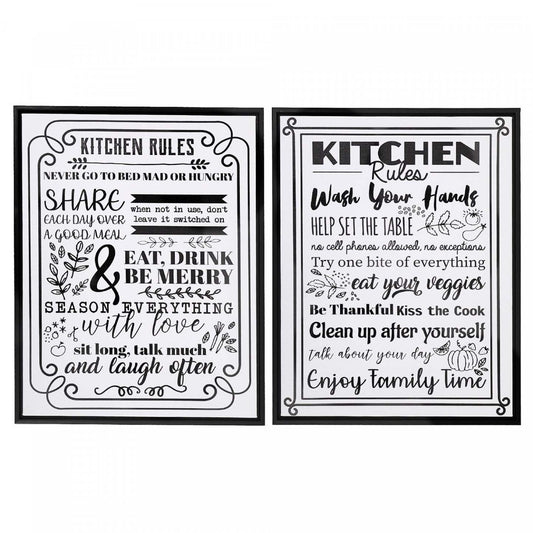 KITCHEN RULES
NEVER GO TO BED MAD OR HUNGRY
SHARE
EACH DAY OVER
A GOOD MEAL
when not in use, don't
leave it switched on
& EAT, DRINK
BE MERRY
SEASON EVERYTHING
with love
sit long, talk much
and laugh often
KITCHEN
Rules
Wash Your Hands
HELP SET THE TABLE
no cell phones allowed, no exceptions
Try one bite of everything
eat your veggies
Be Thankful Kiss the Cook
Clean up after yourself
talk about your day
Enjoy Family Time